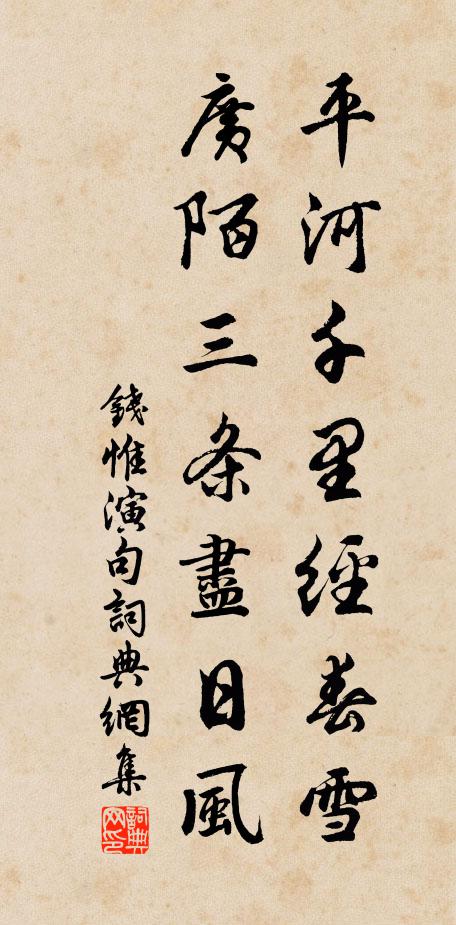 平河千里經春雪
廣陌三条盡日風
錢惟演句詞典網集
詞典
网印